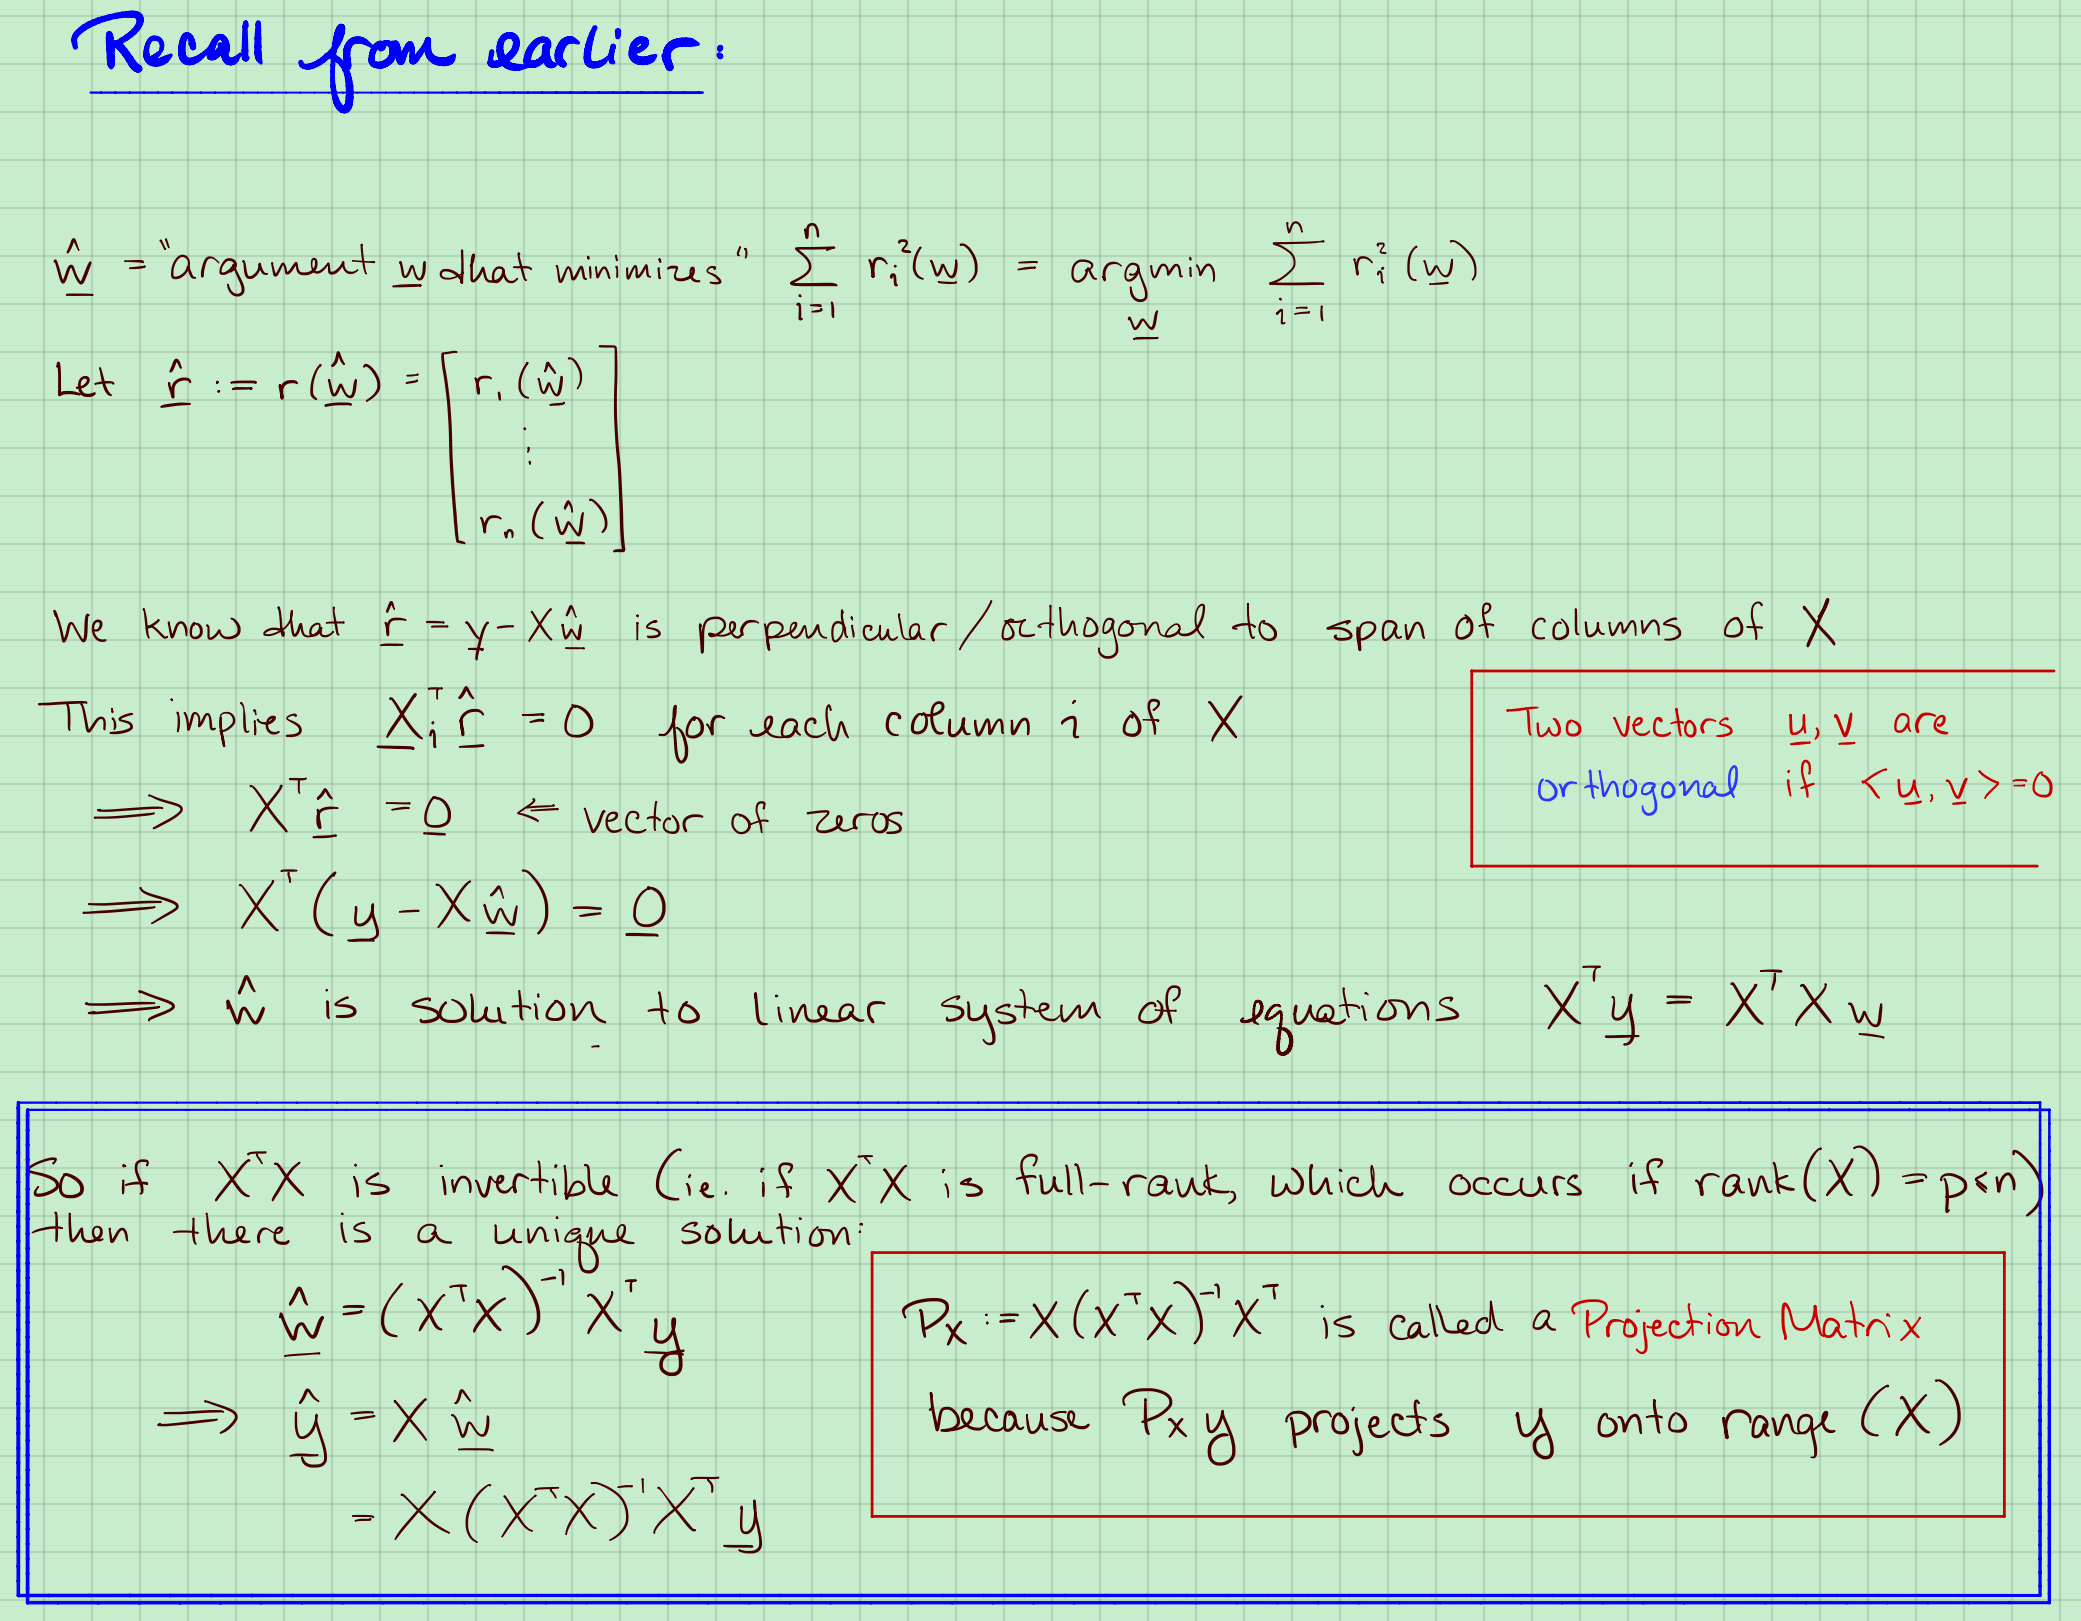 Recall from earlier:
ŵ = "argument w that minimizes" ∑_{i=1}^{n} r_i²(w) = argmin_w ∑_{i=1}^{n} r_i²(w)
Let r̂ := r(ŵ) = [ r_1(ŵ) ⋮ r_n(ŵ) ]
We know that r̂ = y - Xŵ is perpendicular/orthogonal to span of columns of X
This implies X_i^T r̂ = 0 for each column i of X
Two vectors u, v are
orthogonal if <u, v> = 0
⟹ X^T r̂ = 0 ⇐ vector of zeros
⟹ X^T (y - Xŵ) = 0
⟹ ŵ is solution to linear system of equations X^T y = X^T X w
So if X^T X is invertible (ie. if X^T X is full-rank, which occurs if rank(X) = p<n)
then there is a unique solution:
ŵ = (X^T X)^{-1} X^T y
⟹ ŷ = X ŵ
= X (X^T X)^{-1} X^T y
P_X := X(X^T X)^{-1} X^T is called a Projection Matrix
because P_X y projects y onto range (X)